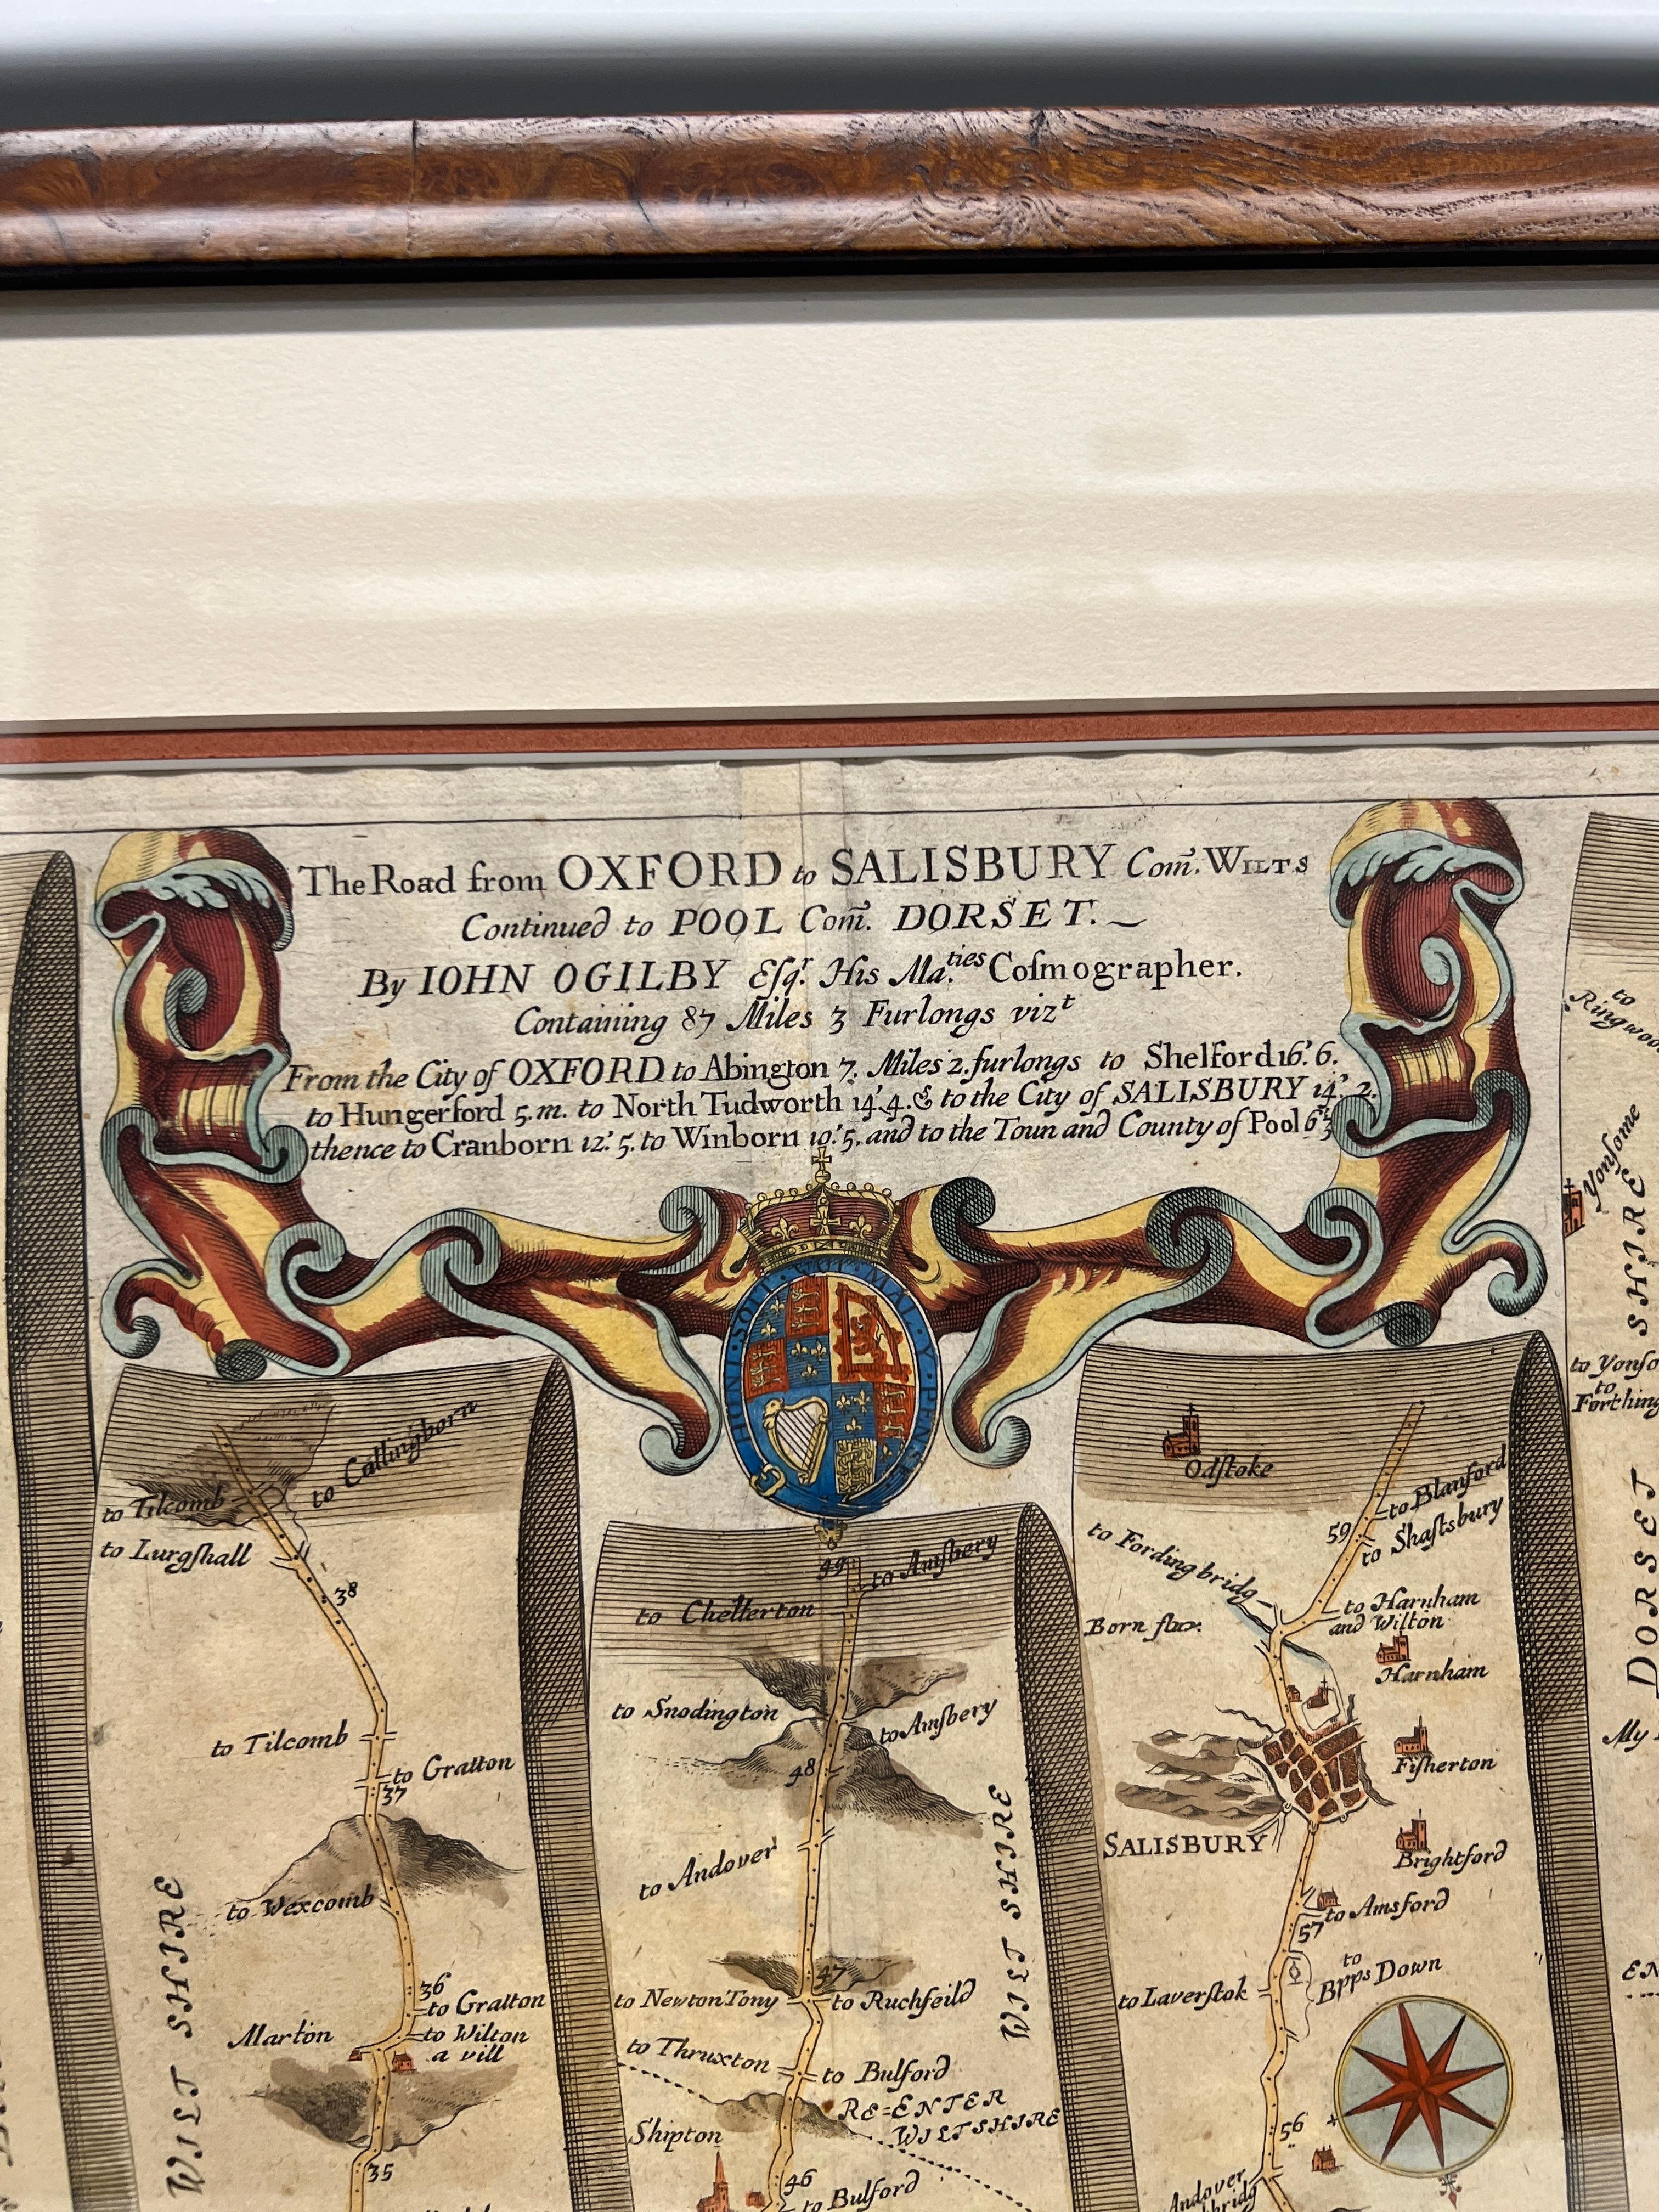 The Road from OXFORD to SALISBURY Com̄. WILTS
Continued to POOL Com̄. DORSET.
By IOHN OGILBY Eſqr. His Ma.ties Coſmographer.
Containing 87 Miles 3 Furlongs vizt
From the City of OXFORD to Abington 7. Miles 2. furlongs to Shelford 16'. 6.
to Hungerford 5. m. to North Tudworth 14'. 4. & to the City of SALISBURY 14'. 2.
thence to Cranborn 12'. 5. to Winborn 10'. 5. and to the Toun and County of Pool 6' 3
HONI · SOIT · QUI · MAL · Y · PENSE
to Callingborn
to Tilcomb
to Lurgſhall
38
to Tilcomb
to Gratton
37
to Wexcomb
36
to Gratton
Marton
to Wilton
a vill
35
WILT SHIRE
49
to Amſbery
to Chelterton
to Snodington
to Amſbery
48
to Andover
47
to Newton Tony
to Ruchfeild
to Thruxton
to Bulford
RE=ENTER
WILTSHIRE
Shipton
46
to Bulford
WILT SHIRE
Odſtoke
to Blanford
59
to Shaſtsbury
to Fordingbridg
to Harnham
and Wilton
Born flux.
Harnham
Fiſherton
SALISBURY
Brightford
to Amsford
57
to
Bpps Down
to Laverſtok
56
Andover
bridg
to
Ringwoo
Yonſome
SHIRE
to Yonſo
to
Forthing
DORSET
My
EN